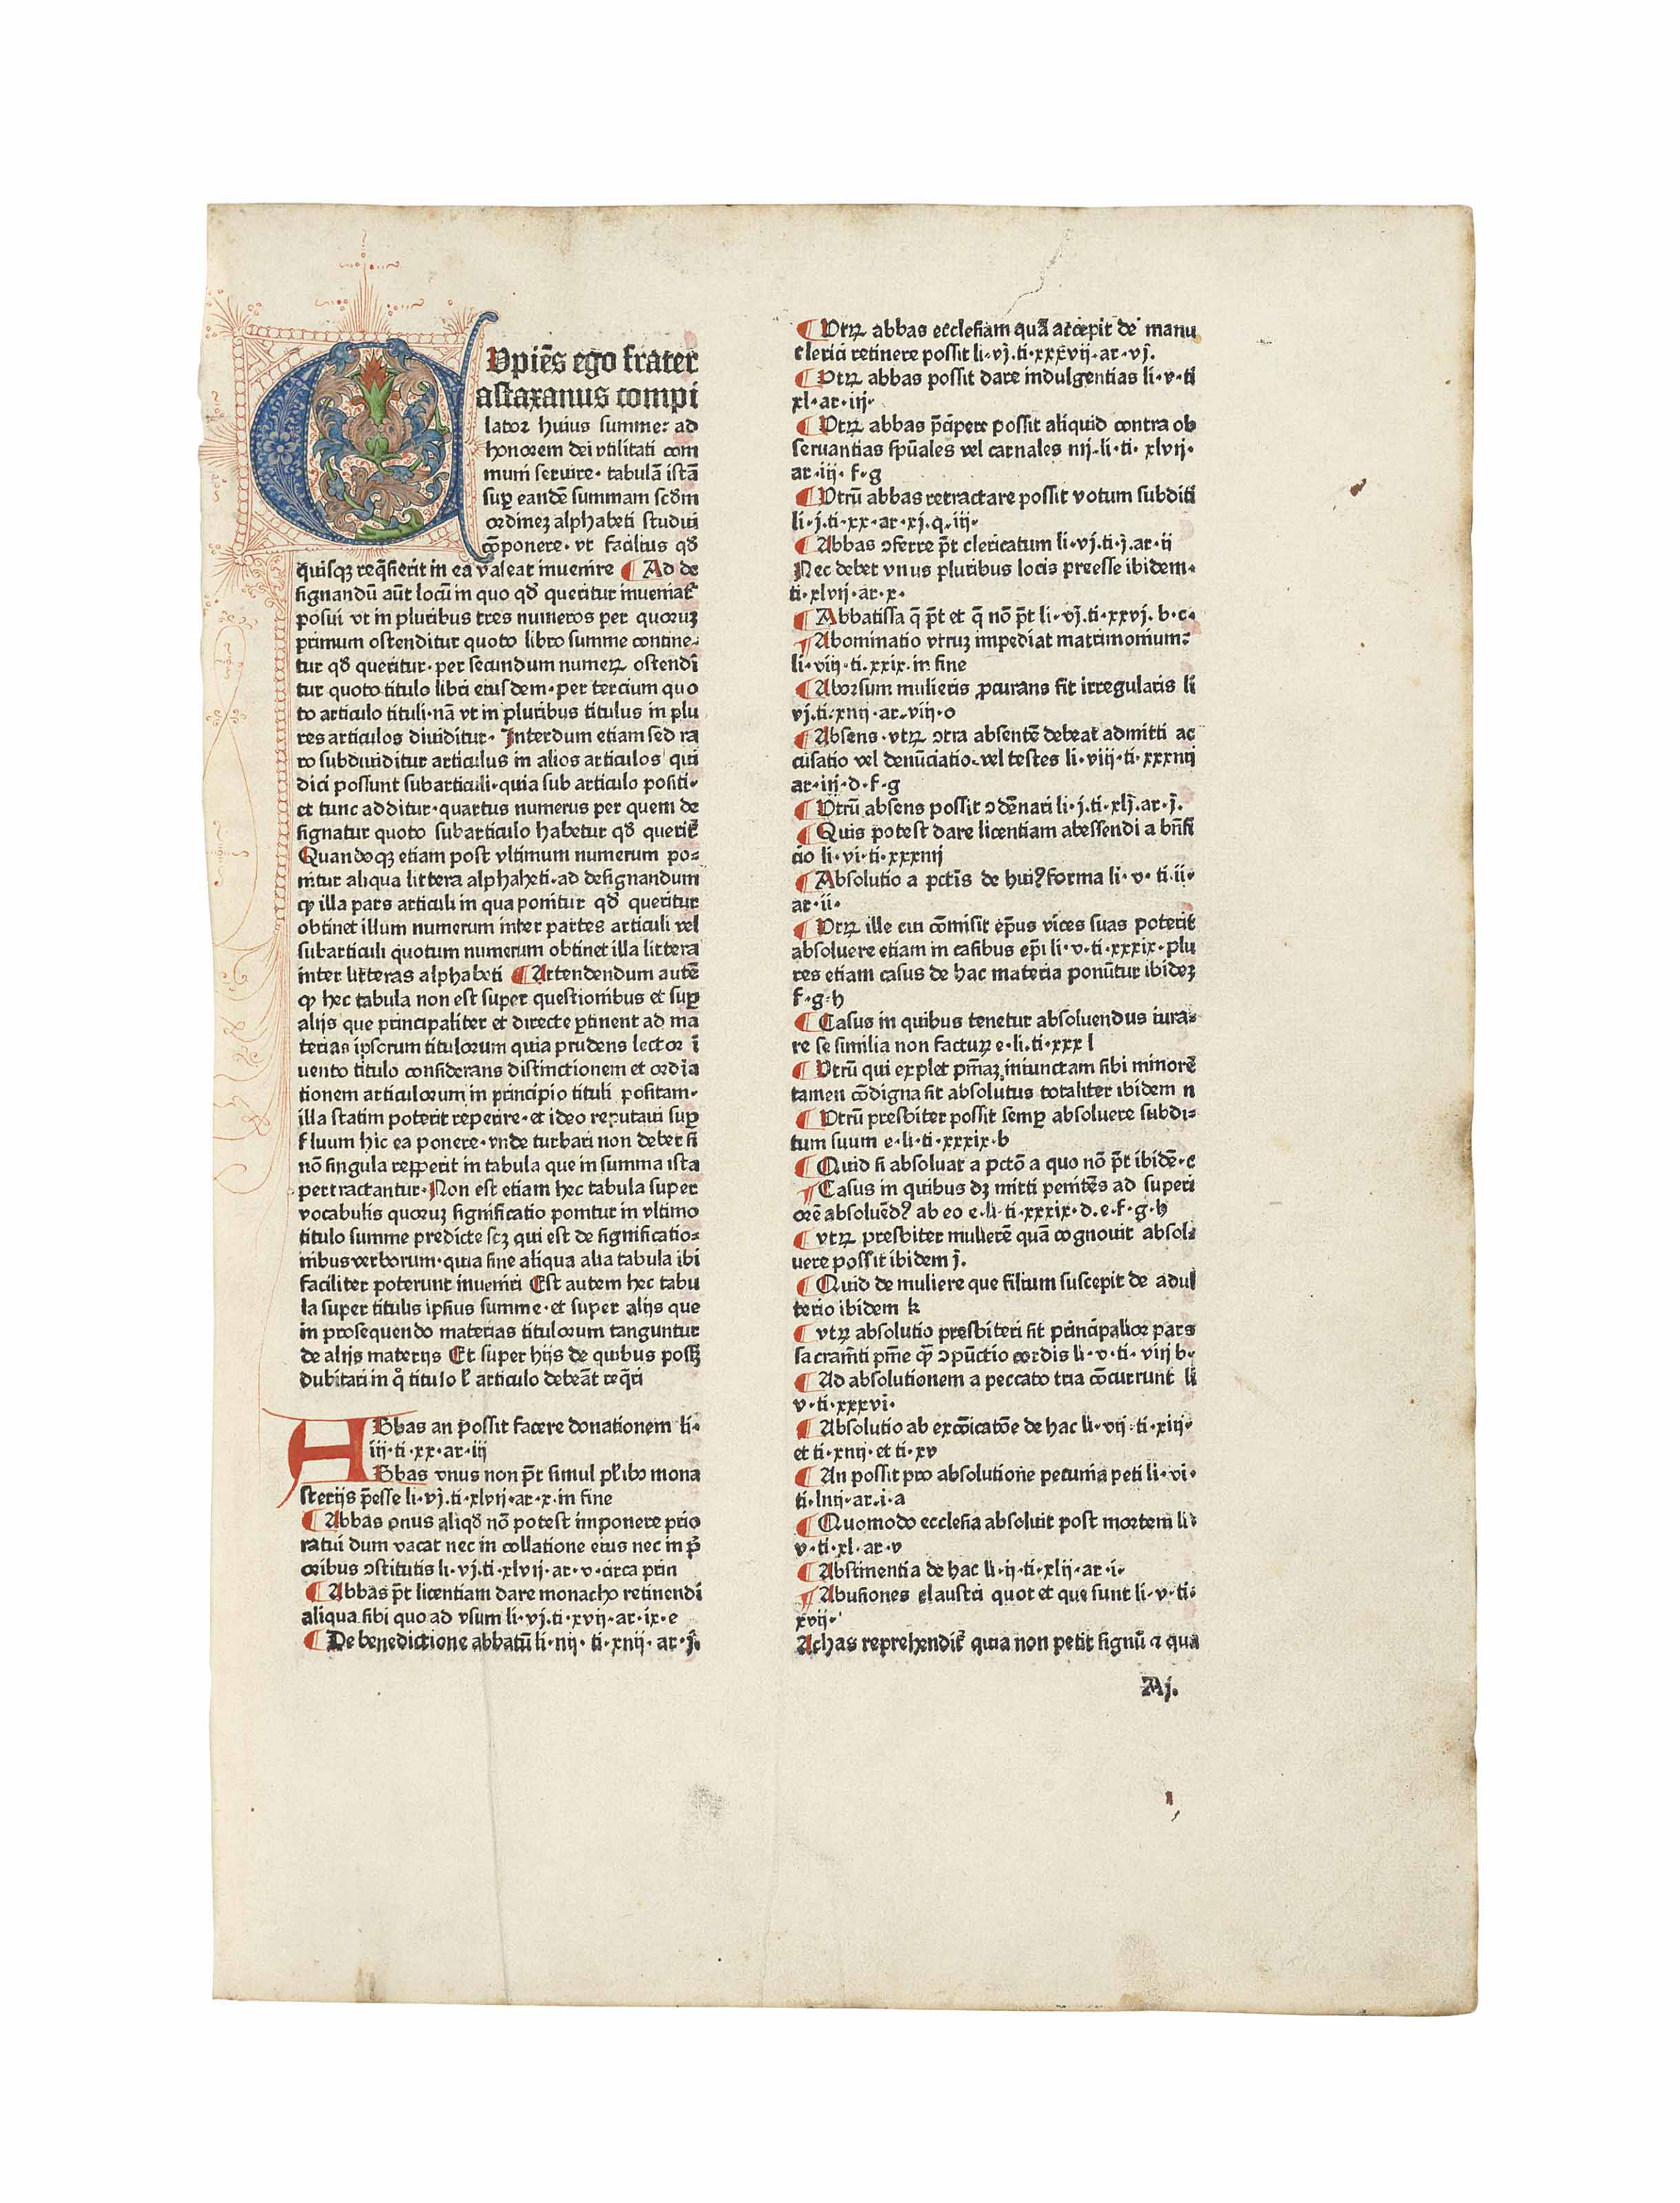 CVpiẽs ego frater
astaxanus compi
lator huius summe: ad
honorem dei vtilitati com
muni seruire · tabulã istã
suꝑ eandẽ summam scd̃m
ordinẽ alphabeti studui
cõponere · vt facilius qd̃
quisqꝫ reqͥsierit in ea valeat inuenire ¶ Ad de
signandũ aũt locũ in quo qd̃ queritur inueniat᷑
posui vt in pluribus tres numeros per quoruꝫ
primum ostenditur quoto libro summe contine-
tur qd̃ queritur · per secundum numeꝝ ostendi
tur quoto titulo libri eiusdem · per tercium quo
to articulo tituli · nã vt in pluribus titulus in plu
res articulos diuiditur · Interdum etiam sed ra
ro subdiuiditur articulus in alios articulos qui
dici possunt subarticuli · quia sub articulo positi ·
et tunc additur · quartus numerus per quem de
signatur quoto subarticulo habetur qd̃ querit᷑
Quandoqꝫ etiam post vltimum numerum po-
nitur aliqua littera alphabeti · ad designandum
ꝙ illa pars articuli in qua ponitur qd̃ queritur
obtinet illum numerum inter partes articuli vel
subarticuli quotum numerum obtinet illa littera
inter litteras alphabeti ¶ Attendendum autẽ
ꝙ hec tabula non est super questionibus et suꝑ
alijs que principaliter et directe ꝑtinent ad ma
terias ipsorum titulorum quia prudens lector ĩ
uento titulo considerans distinctionem et ordĩa
tionem articulorum in principio tituli positam ·
illa statim poterit reperire · et ideo reputaui suꝑ
fluum hic ea ponere · vnde turbari non debet si
nõ singula repperit in tabula que in summa ista
pertractantur · Non est etiam hec tabula super
vocabulis quoruꝫ significatio ponitur in vltimo
titulo summe predicte scꝫ qui est de significatio-
nibus verborum · quia sine aliqua alia tabula ibi
faciliter poterunt inueniri Est autem hec tabu
la super titulis ipsius summe · et super alijs que
in prosequendo materias titulorum tanguntur
de alijs materijs Et super hijs de quibus possꝫ
dubitari in qͦ titulo ƚ articulo debeãt reqͥri
ABbas an possit facere donationem li ·
iij · ti · xx · ar · iij
Abbas vnus non pt̃ simul pl̃ibꝰ mona
sterijs p̃esse li · vj. ti · xlvij · ar · x · in fine
¶ Abbas onus aliqd̃ nõ potest imponere prio
ratui dum vacat nec in collatione eius nec in p̃
oribus ꝯstitutis li · vj. ti · xlvij · ar · v · circa prin
¶ Abbas pt̃ licentiam dare monacho retinendi
aliqua sibi quo ad vsum li · vj. ti · xvij · ar · ix · e
¶ De benedictione abbatũ li · nij · ti · xnij · ar · j.
¶ Vtꝝ abbas ecclesiam quã accepit de manu
clerici retinere possit li · vj. ti · xxxvij · ar · vj.
¶ Vtꝝ abbas possit dare indulgentias li · v · ti
xl · ar · iij ·
¶ Vtꝝ abbas p̃cipere possit aliquid contra ob
seruantias sp̃uales vel carnales nij · li · ti · xlvij ·
ar · iij · f · g
¶ Vtrũ abbas retractare possit votum subditi
li · j. ti · xx · ar · xj. q. iij ·
¶ Abbas ꝯferre pt̃ clericatum li · vj. ti · j. ar · ii
Nec debet vnus pluribus locis preesse ibidem ·
ti · xlvij · ar · x ·
¶ Abbatissa q̃ pt̃ et q̃ nõ pt̃ li · vj. ti · xxvj. b · c ·
¶ Abominatio vtruꝫ impediat matrimonium:
li · viij · ti · xxix · in fine
¶ Aborsum mulieris ꝓcurans fit irregularis li
vj. ti · xnij · ar · viij · o
¶ Absens · vtꝝ ꝯtra absentẽ debeat admitti ac
cusatio vel denũciatio · vel testes li · viij · ti · xxxnij
ar · iij · d · f · g
¶ Vtrũ absens possit ꝯdẽnari li · j. ti · xlj. ar · j.
¶ Quis potest dare licentiam abessendi a bñfi
cio li · vi · ti · xxxnij
¶ Absolutio a pctĩs de huiꝰ forma li · v · ti · ii ·
ar · ii ·
¶ Vtꝝ ille cui cõmisit ep̃us vices suas poterit
absoluere etiam in casibus ep̃i li · v · ti · xxxix · plu
res etiam casus de hac materia ponũtur ibideꝫ
f · g · h
¶ Casus in quibus tenetur absoluendus iura-
re se similia non factuꝝ e · li · ti · xxx l
¶ Vtrũ qui explet pm̃aꝫ iniunctam sibi minorẽ
tamen cõdigna sit absolutus totaliter ibidem n
¶ Vtrũ presbiter possit semꝑ absoluere subdi-
tum suum e · li · ti · xxxix · b
¶ Quid si absoluat a pctõ a quo nõ pt̃ ibidẽ · c
¶ Casus in quibus dꝫ mitti penitẽs ad superi
orẽ absoluẽdꝰ ab eo e · li · ti · xxxix · d · e · f · g · h
¶ vtꝝ presbiter mulierẽ quã cognouit absol-
uere possit ibidem j.
¶ Quid de muliere que filium suscepit de adul
terio ibidem k
¶ vtꝝ absolutio presbiteri sit principalior pars
sacram̃ti pm̃e qꝫ̃ ꝯpũctio cordis li · v · ti · viij b ·
¶ Ad absolutionem a peccato tria cõcurrunt li
v · ti · xxxvi ·
¶ Absolutio ab excõicatõe de hac li · vij · ti · xiij ·
et ti · xnij · et ti · xv
¶ An possit pro absolutione pecunia peti li · vi ·
ti · lnij · ar · i · a
¶ Quomodo ecclesia absoluit post mortem li ·
v · ti · xl · ar · v
¶ Abstinentia de hac li · ij · ti · xlij · ar · i ·
¶ Abusiones claustri quot et que sunt li · v · ti ·
xvij ·
Achas reprehendit᷑ quia non petit signũ ⁊ qua
Aj.